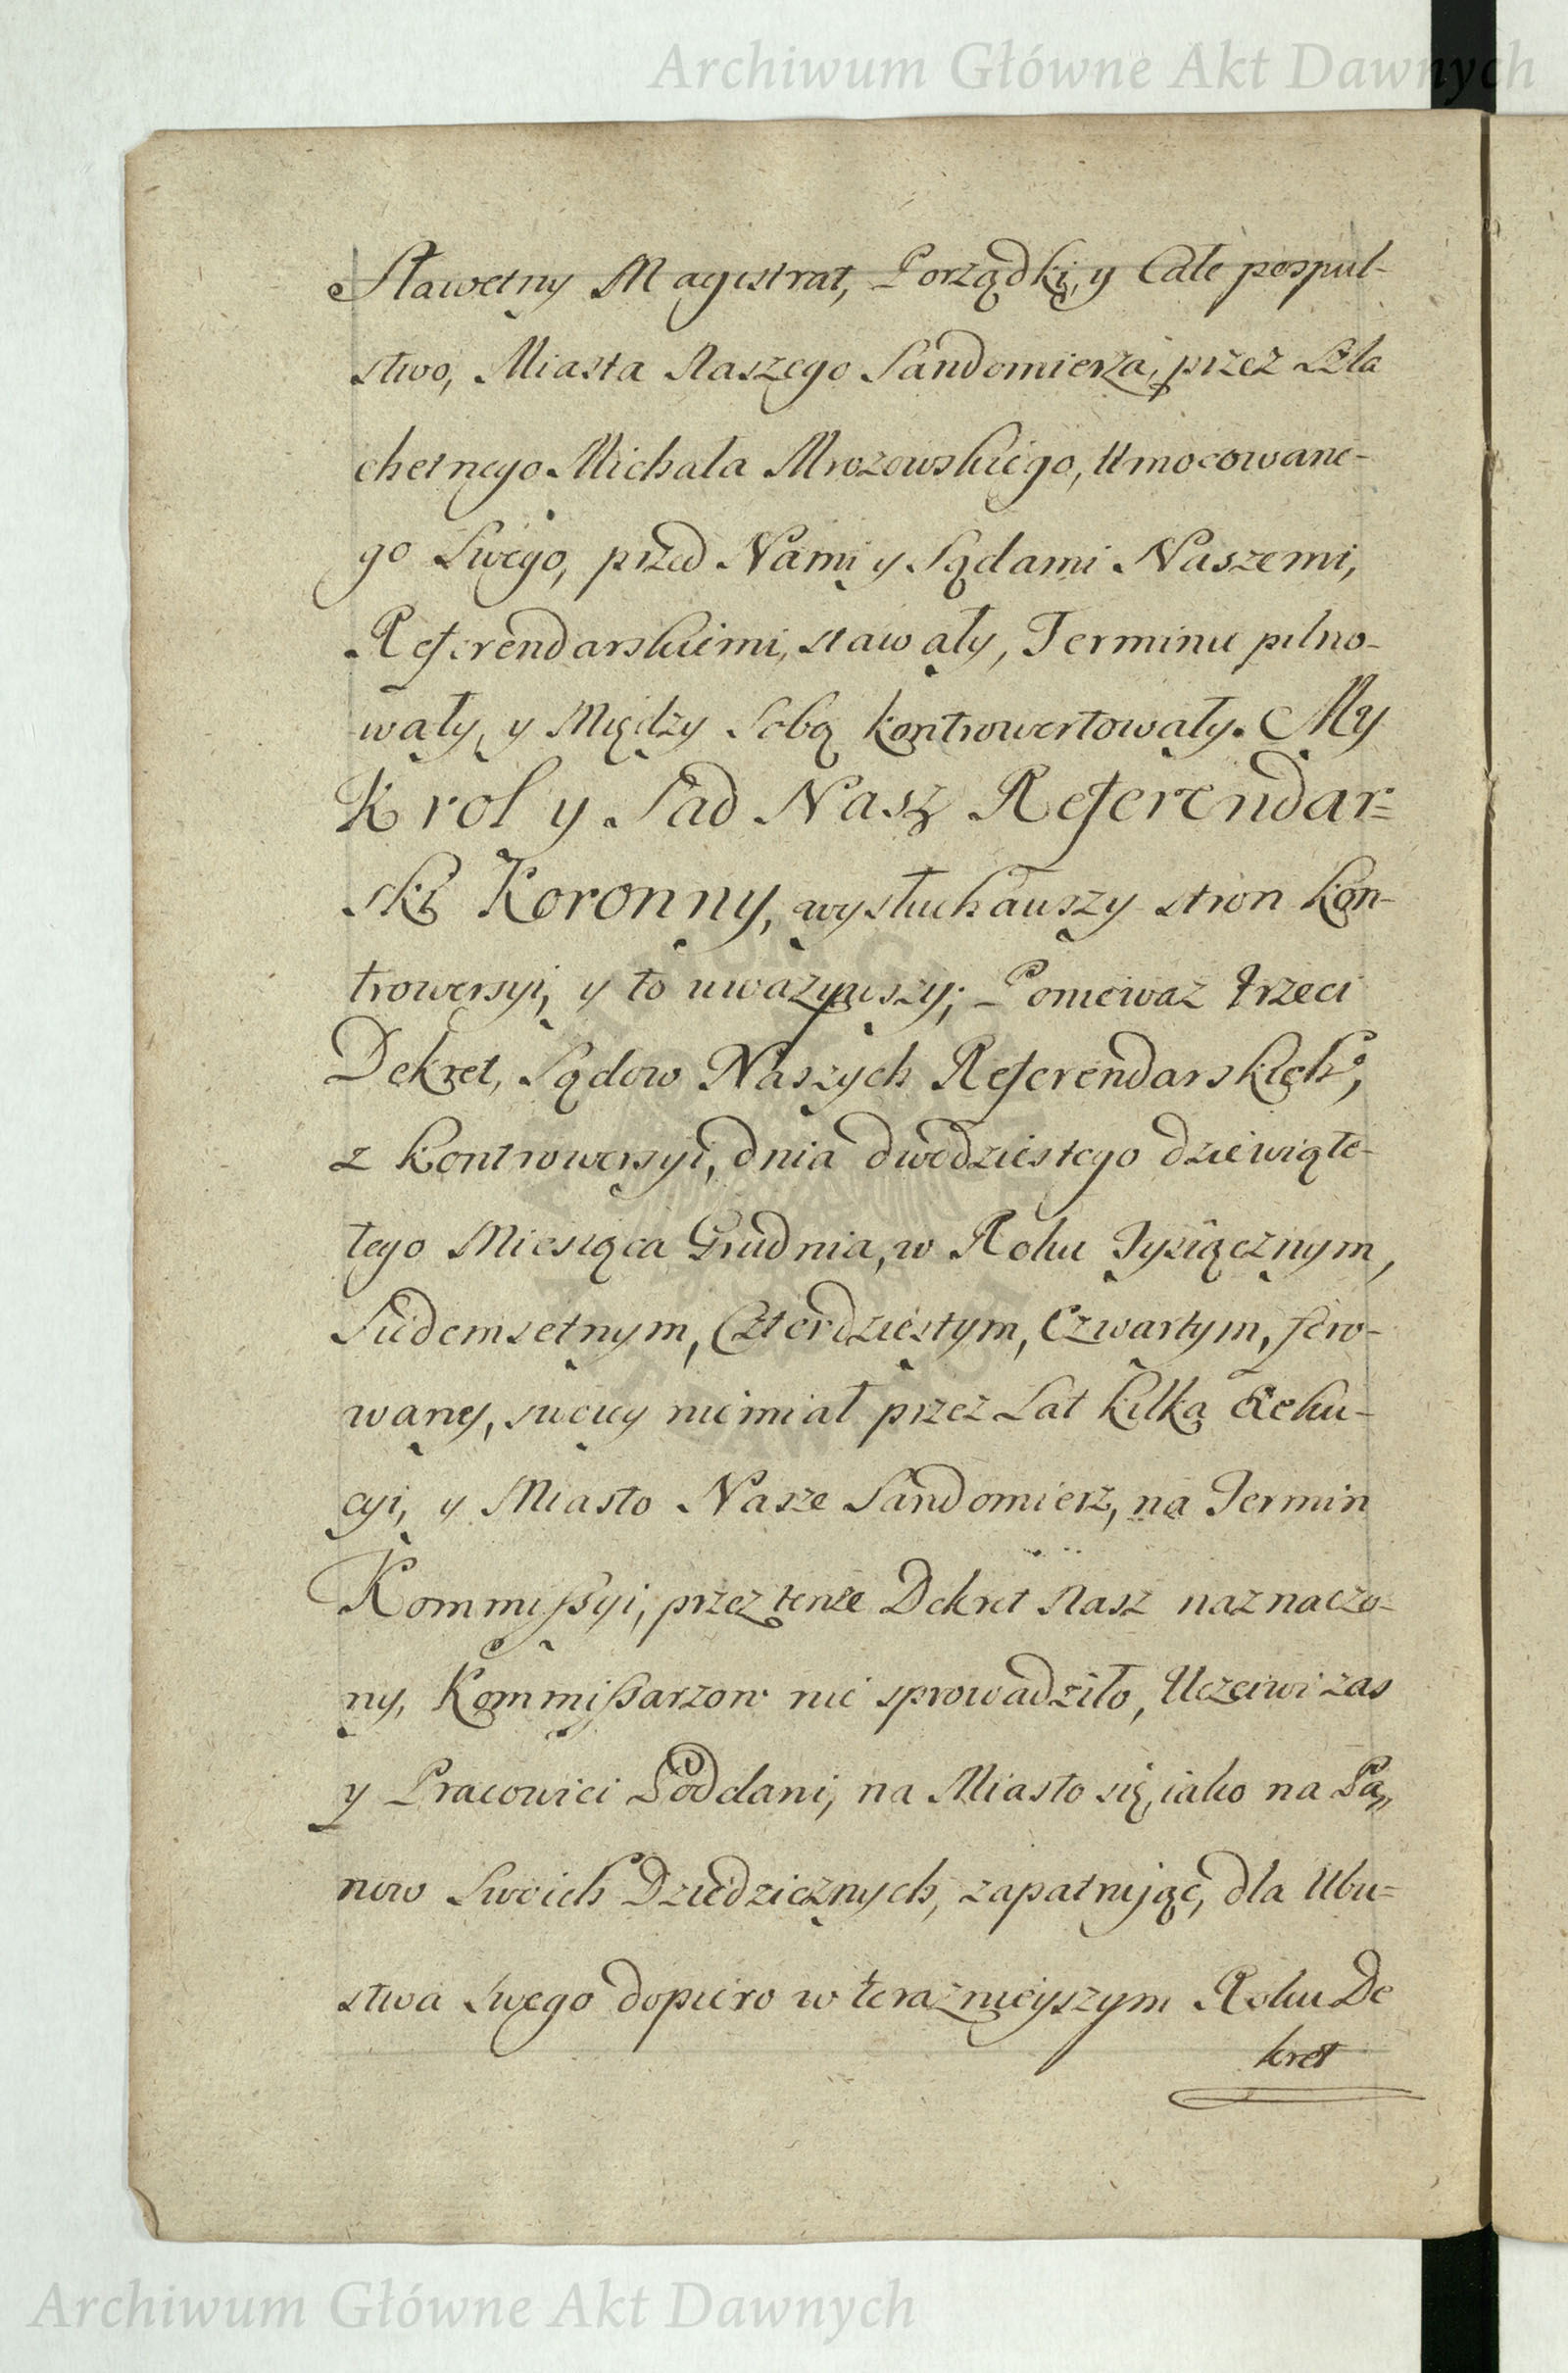 Archiwum Główne Akt Dawnych
Sławetny Magistrat, Porządki, y Całe pospul-
stwo, Miasta Naszego Sandomierza, przez Szla
chetnego Michała Mrozowskiego, Umocowane-
go Swego, przed Nami y Sądami Naszemi,
Referendarskiemi, stawały, Terminu pilno-
wały, y Między Sobą kontrowertowały. My
Krol y Sąd Nasz Referendar=
ski Koronny, wysłuchawszy stron kon-
trowersyi, y to uważywszy; Ponieważ trzeci
Dekret, Sądow Naszych Referendarskich,
z Kontrowersyi, dnia dwódziestego dziewiąte-
tego Miesiąca Grudnia, w Roku Tysiącznym,
Siedemsetnym, Czterdziestym, Czwartym, fero-
wany, swoiey niemiał przez Lat kilka Exeku-
cyi, y Miasto Nasze Sandomierz, na Termin
Kommissyi, przez tenże Dekret Nasz naznaczo-
ny, Kommissarzow nie sprowadziło, Uczciwi zas
y Pracowici Poddani, na Miasto się, iako na Pa„
now Swoich Dziedzicznych, zapatruiąc, dla Ubu=
stwa Swego dopiero w teraznieyszym Roku De
kret
Archiwum Główne Akt Dawnych